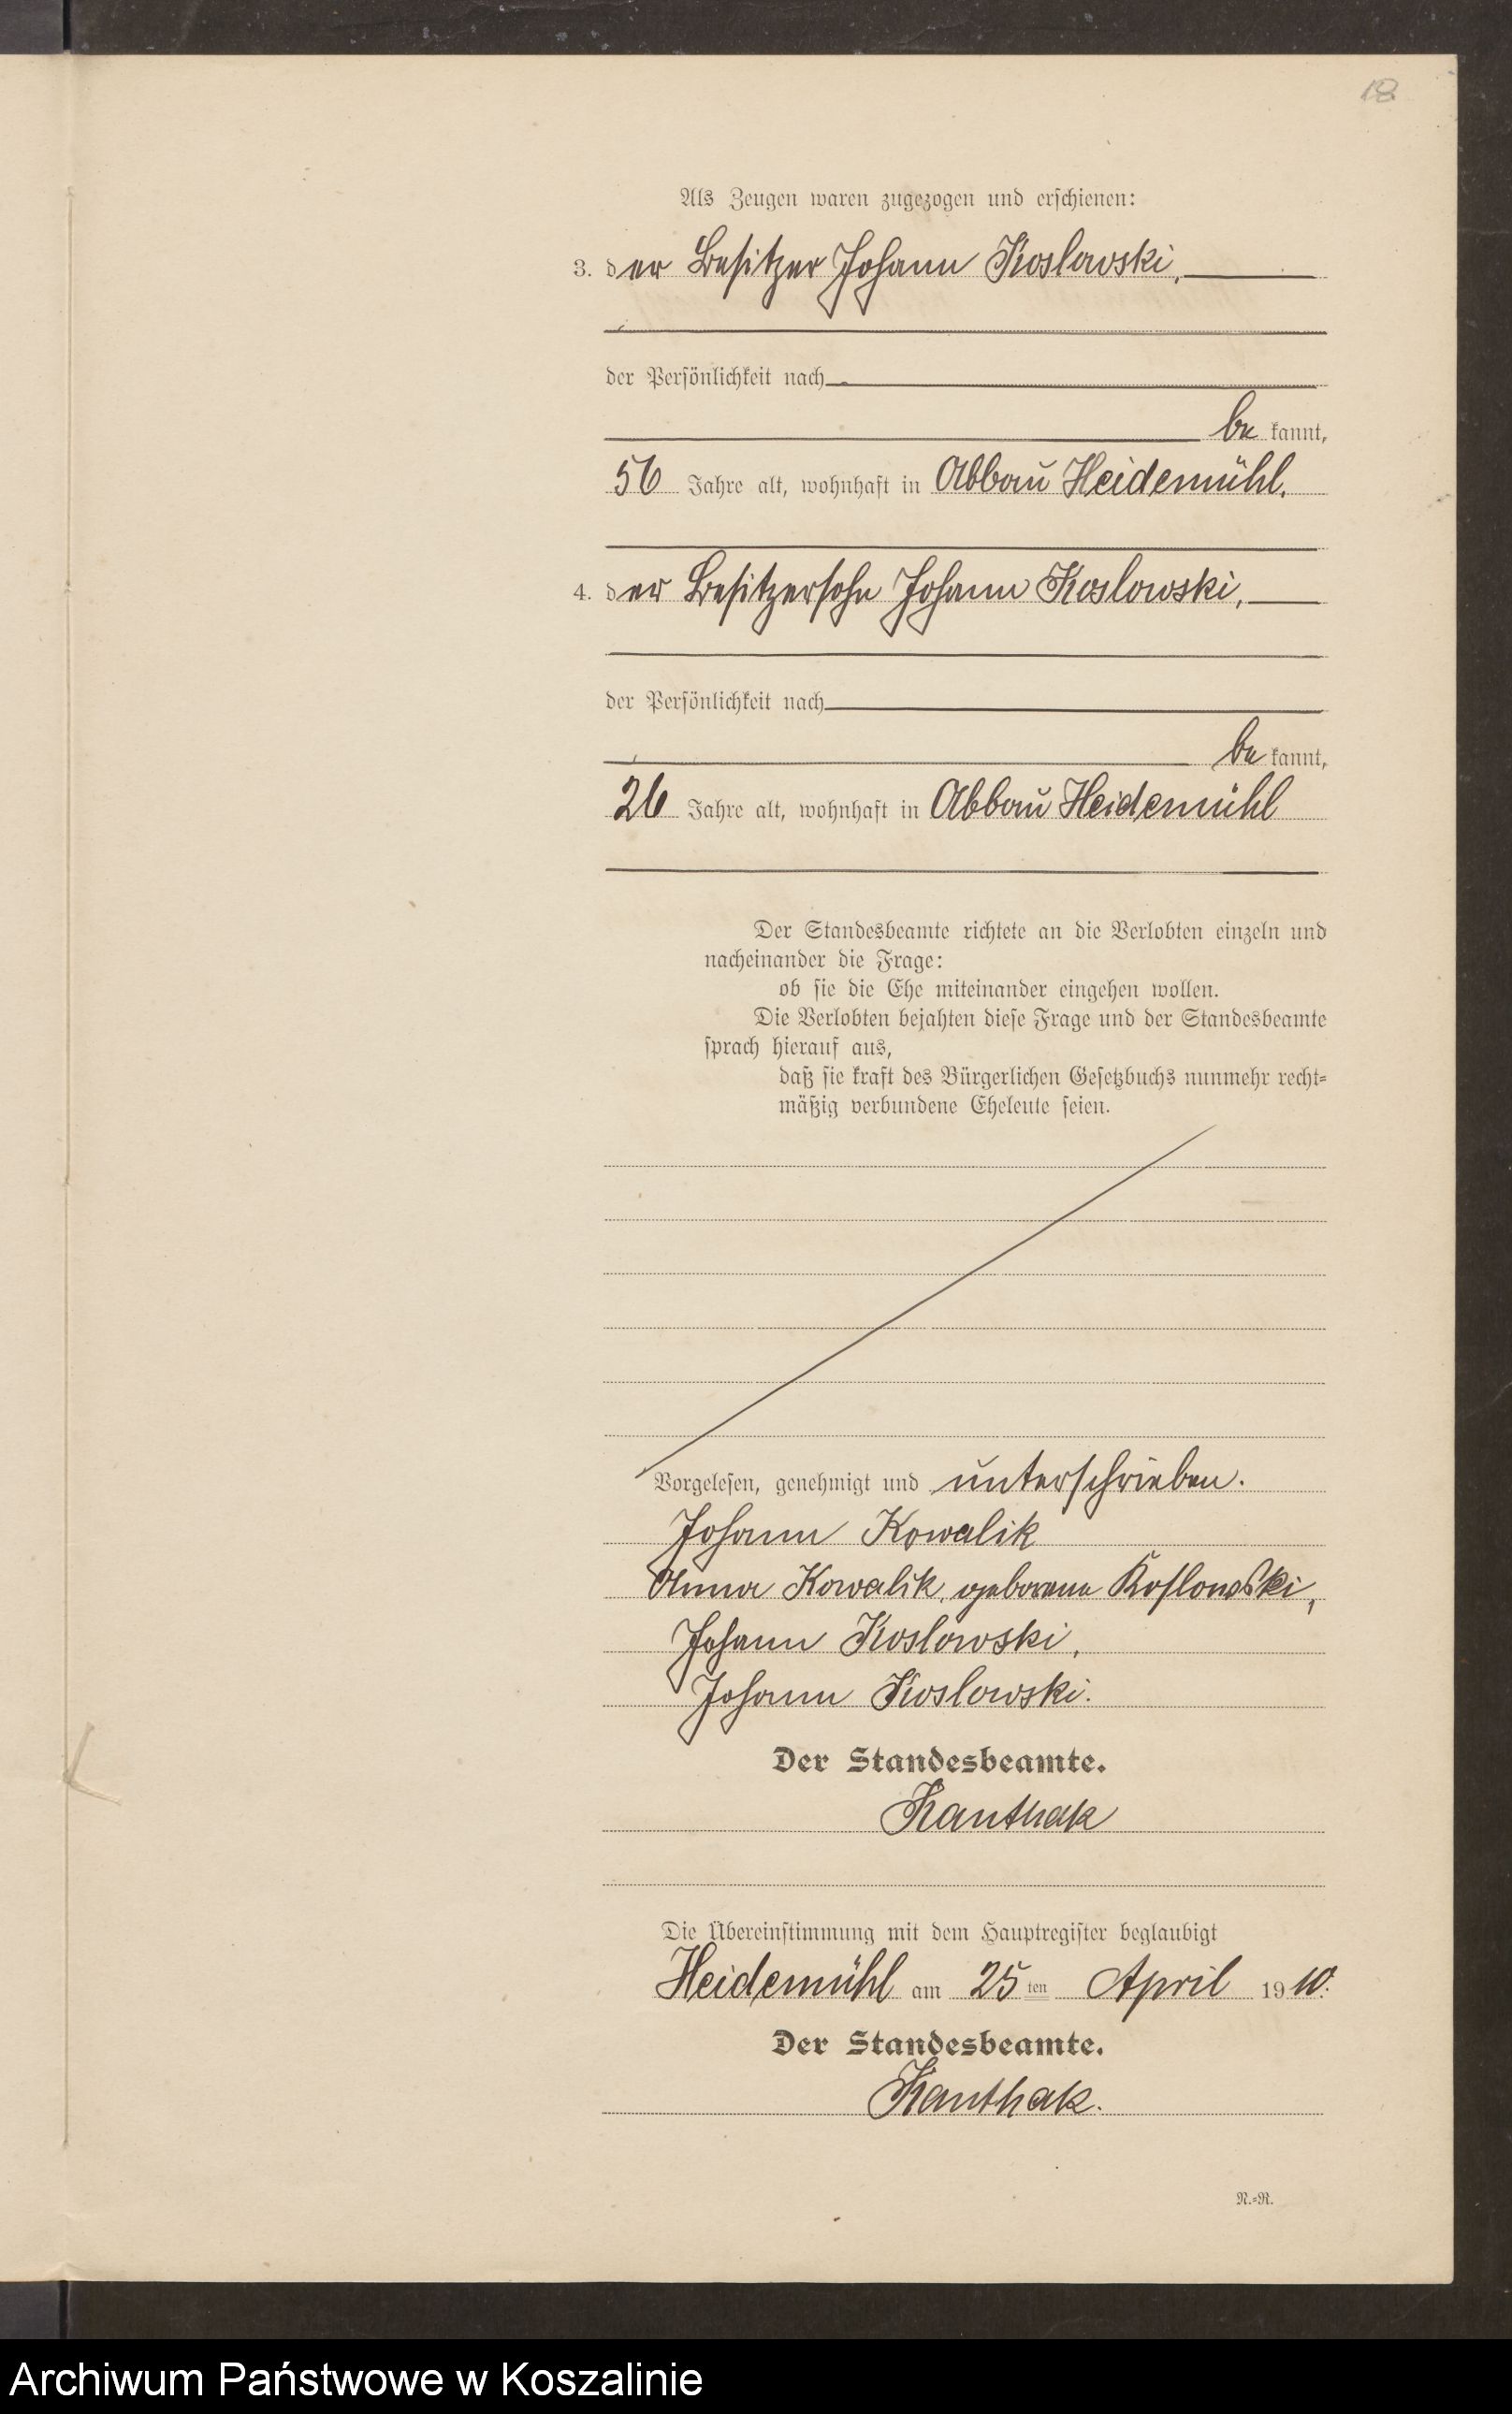 18
Als Zeugen waren zugezogen und erschienen:
3. der Besitzer Johann Koslowski,
der Persönlichkeit nach
be kannt,
56 Jahre alt, wohnhaft in Abbau Heidemühl.
4. der Besitzersohn Johann Koslowski,
der Persönlichkeit nach
be kannt,
26 Jahre alt, wohnhaft in Abbau Heidemühl
Der Standesbeamte richtete an die Verlobten einzeln und
nacheinander die Frage:
ob sie die Ehe miteinander eingehen wollen.
Die Verlobten bejahten diese Frage und der Standesbeamte
sprach hierauf aus,
daß sie kraft des Bürgerlichen Gesetzbuchs nunmehr recht-
mäßig verbundene Eheleute seien.
Vorgelesen, genehmigt und unterschrieben.
Johann Kowalik
Anna Kowalik, geborene Koslowski,
Johann Koslowski,
Johann Koslowski.
Der Standesbeamte.
Kanthak
Die Übereinstimmung mit dem Hauptregister beglaubigt
Heidemühl am 25 ten April 1910.
Der Standesbeamte.
Kanthak.
N.-R.
Archiwum Państwowe w Koszalinie